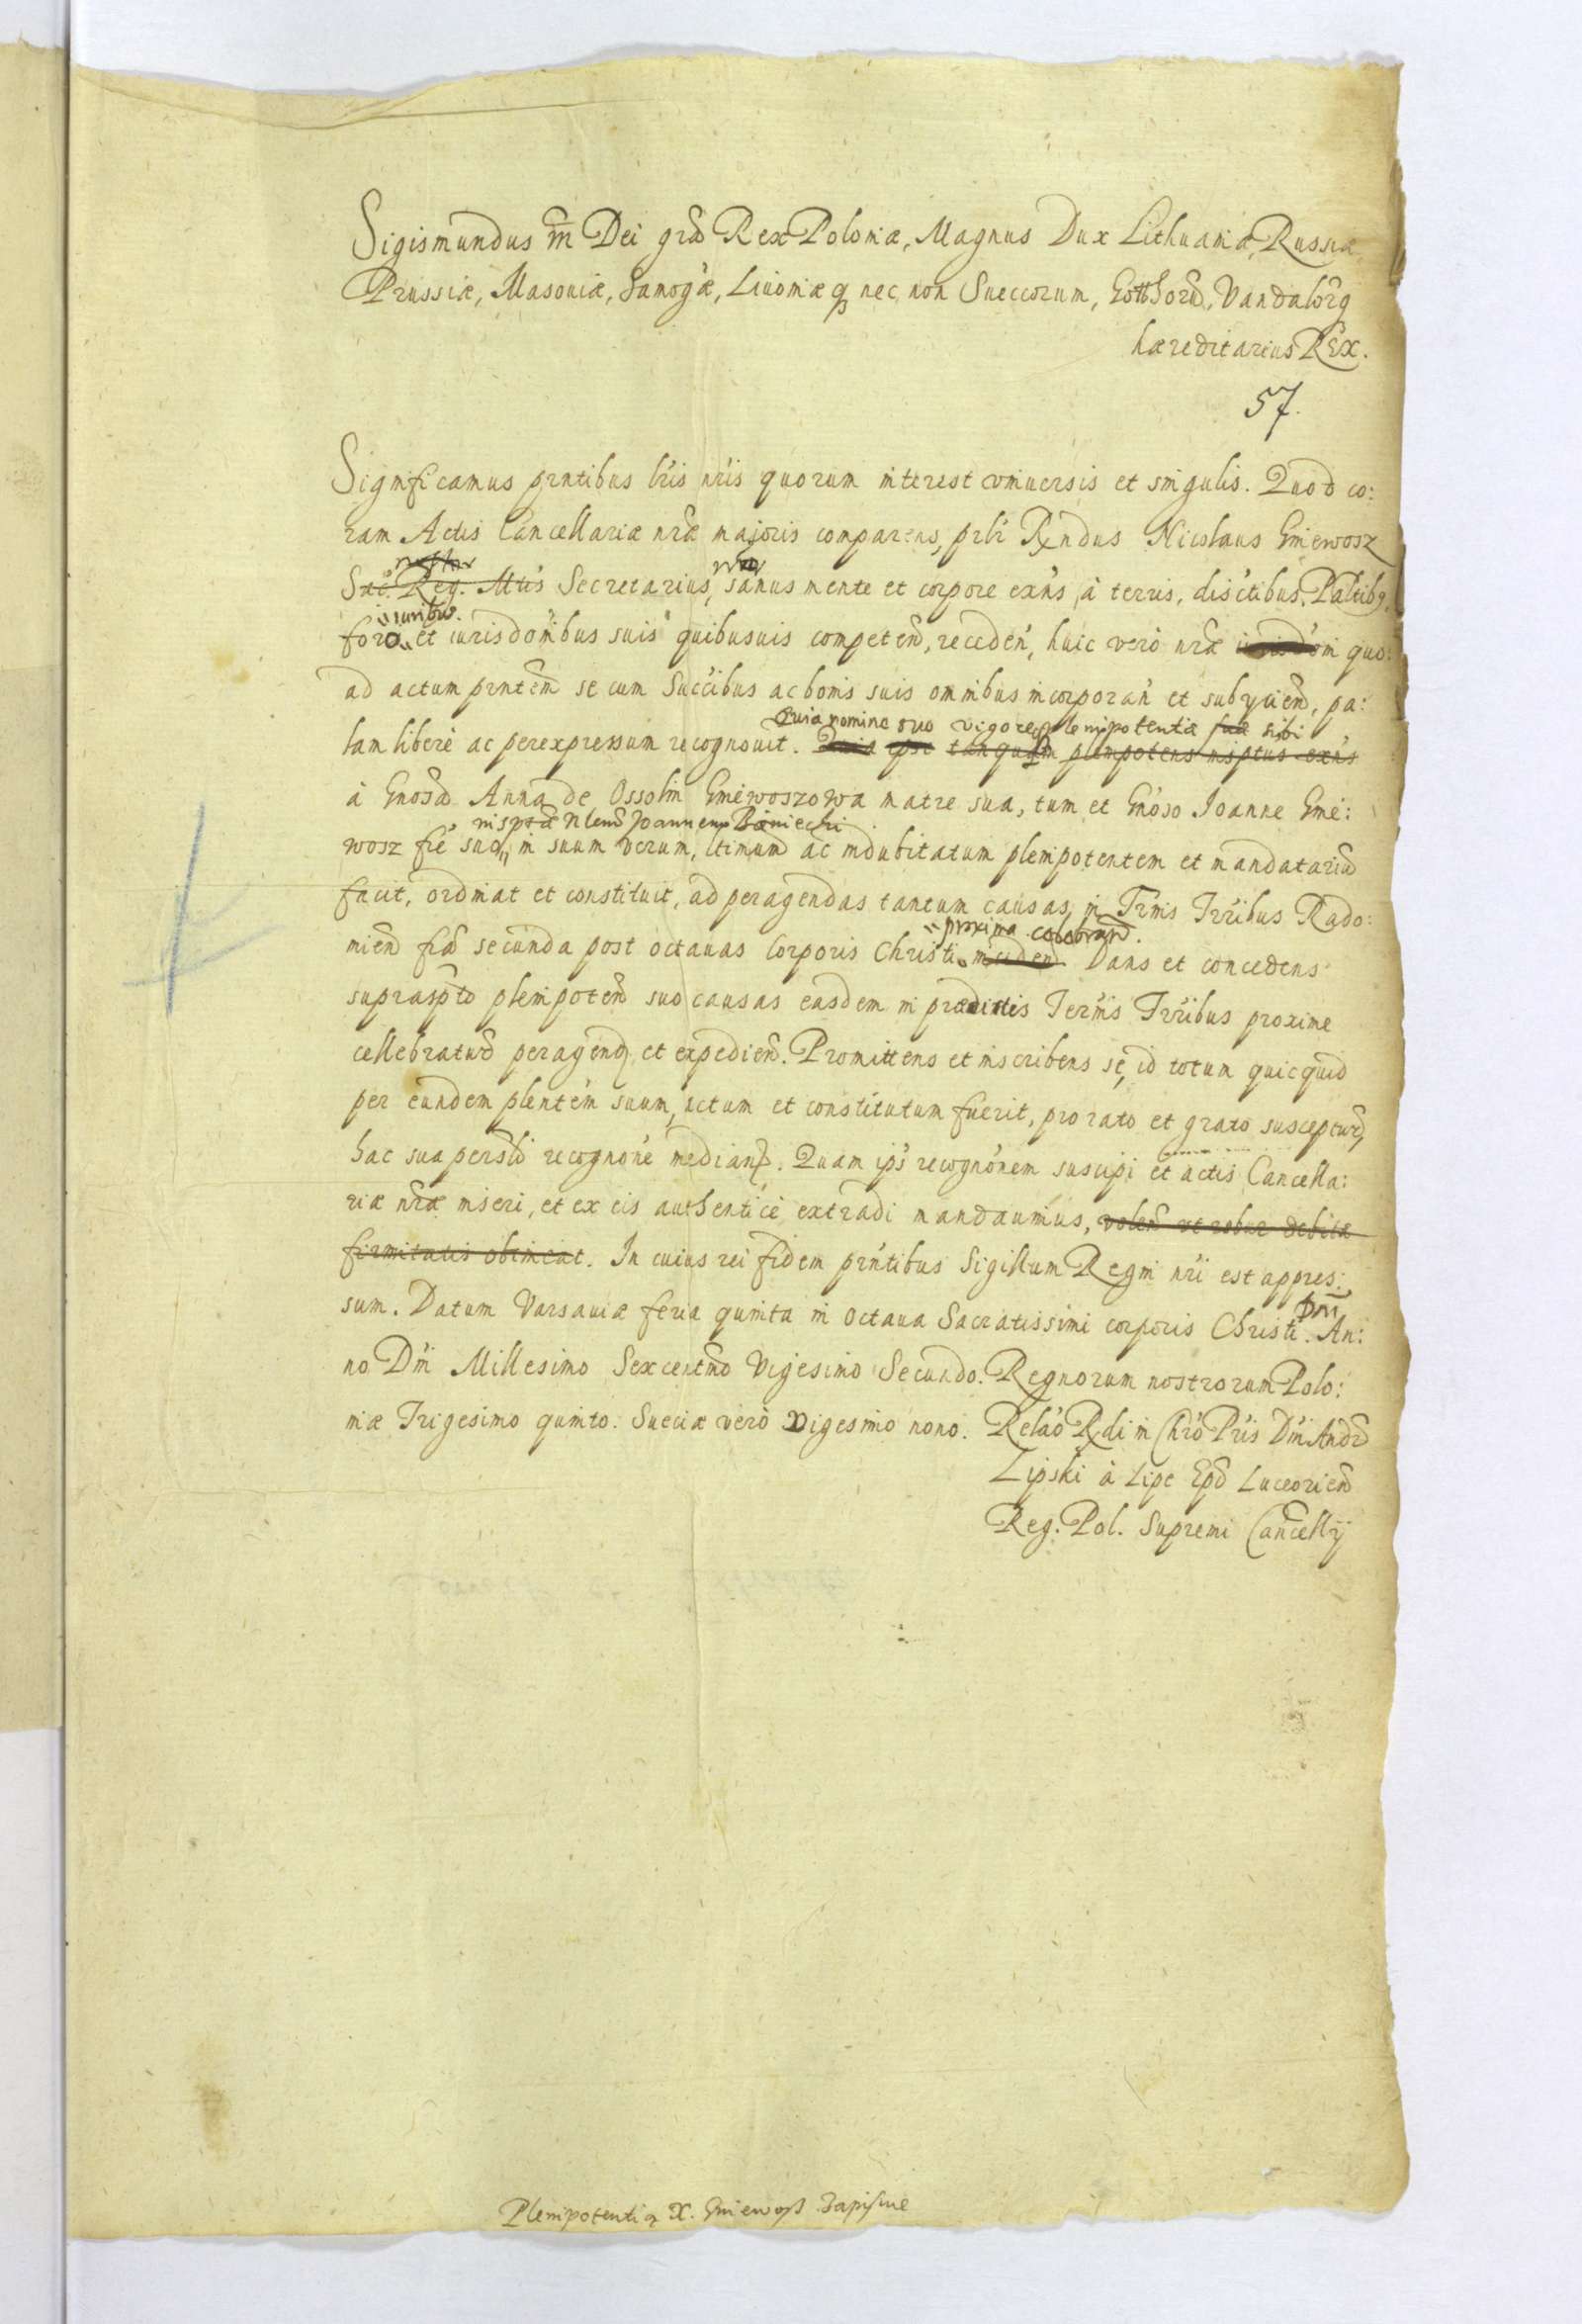 Sigismundus III Dei grã Rex Poloniæ, Magnus Dux Lithuaniæ, Russiæ
Prussiæ, Masoviæ, Samogæ, Livoniæq nec non Sueccorum, Gotthorũ, Vandalorq
hæreditarius REX.
57.
Significamus prntibus lris nris quorum interest universis et singulis. Quod co:
ram Actis Cancellariæ nræ majoris comparens, prlr Rndus Nicolaus Gniewosz
nostri
Sac. Reg. Mtis Secretarius, sanus mente et corpore exns, à terris, disctibus, Paltibq,
iuribus.
foro et iurisdonibus suis quibusuis competen, receden, huic verò nræ iurisdoni quo:
ad actum prntem se cum Succibus ac bonis suis omnibus incorporan et subycien, pa:
Quia nomine suo vigore plenipotentiæ suæ sibi
lam liberè ac per expressum recognouit. Quia ipse tanquam plenipotens insptus exns
à Gnosa Anna de Ossolin Gniewoszowa matre sua, tum et Gnoso Joanne Gnie:
insptæ Nlem Joannem Boniecki
wosz fre suo, in suum verum, ltimum ac indubitatum plenipotentem et mandatariũ
facit, ordinat et constituit, ad peragendas tantum causas, in Trmis Trribus Rado:
proxima celebrand.
mien fia secunda post octauas Corporis Christi inciden. Dans et concedens
supraspto plenipoten suo causas easdem in prædictis Termis Trribus proxime
cellebratur peragend et expedien. Promittens et inscribens se, id totum quicquid
per eundem plentem suum, actum et constitutum fuerit, pro rato et grato suscepturq,
hac sua persli recognone median. Quam ips recognonem suscipi et actis Cancella:
riæ nræ inseri, et ex eis authenticè extradi mandauimus, volen ut robur debitæ
firmitatis obtineat. In cuius rei fidem prntibus Sigillum Regni nri est appres:
Dni
sum. Datum Varsauiæ feria quinta in octaua Sacratissimi corporis Christi. An:
no Dni Millesimo Sexcentmo Vigesimo Secundo. Regnorum nostrorum Polo:
niæ Trigesimo quinto. Sueciæ verò Vigesimo nono. Relao Rdi in Chro Pris Dni Andr
Lipski à Lipe Epi Luceorien
Reg. Pol. Supremi Cancellrij
Plenipotentia X. Gniewosz